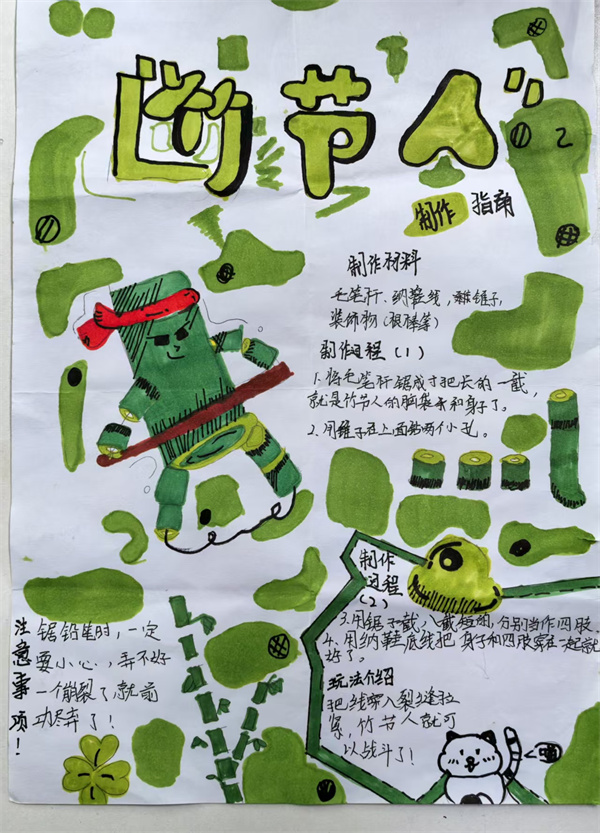 竹节人
制作 指南
制作材料
毛笔杆、纳鞋线,锯锥子,
装饰物(棍棒等)
制作过程(1)
1.将毛笔杆锯成寸把长的一截,
就是竹节人的脑袋和身子了。
2.用锥子在上面钻两个小孔。
制作
过程
(2)
3.用锯子截八截短的,分别当作四肢。
4.用纳鞋底线把身子和四肢穿在一起就
好了。
玩法介绍
把线嵌入裂缝拉
紧,竹节人就可
以战斗了!
喵
注意事项!
锯铅笔时,一定
要小心,弄不好
一个崩裂了,就前
功尽弃了!